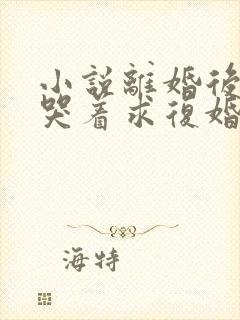 小說離婚後
哭着求復婚
海特